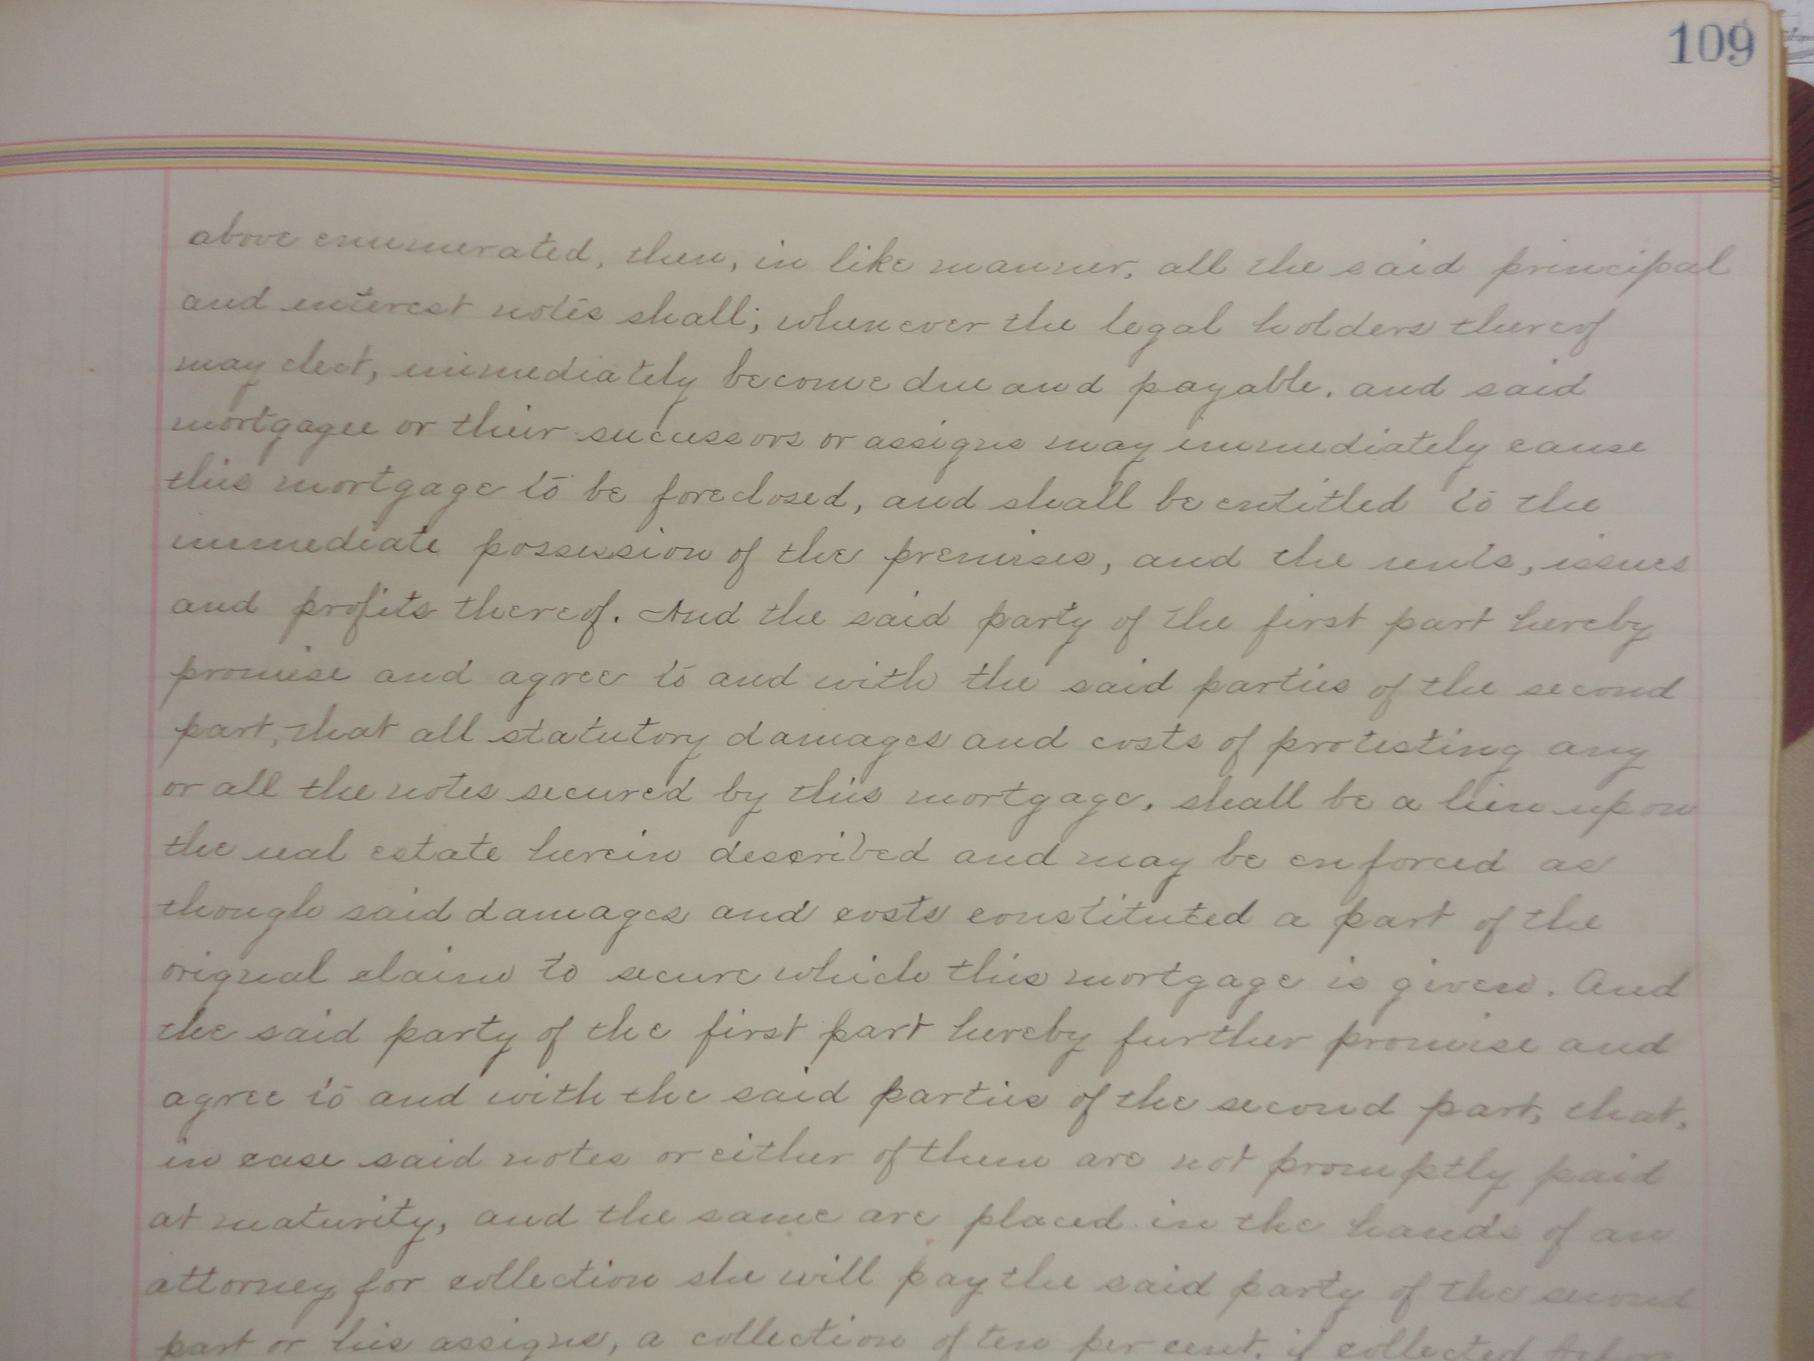 109
above enumerated, then, in like manner, all the said principal
and interest notes shall; whenever the legal holders thereof
may elect, immediately become due and payable, and said
mortgagee or their successors or assigns may immediately cause
this mortgage to be foreclosed, and shall be entitled to the
immediate possession of the premises, and the rents, issues
and profits thereof. And the said party of the first part hereby
promise and agree to and with the said parties of the second
part, that all statutory damages and costs of protesting any
or all the notes secured by this mortgage, shall be a lien upon
the real estate herein described and may be enforced as
though said damages and costs constituted a part of the
orignal claim to secure which this mortgage is given. And
the said party of the first part hereby further promise and
agree to and with the said parties of the second part, that,
in case said notes or either of them are not promptly paid
at maturity, and the same are placed in the hands of an
attorney for collection she will pay the said party of the second
part or his assigns, a collection of ten per cent. if collected before